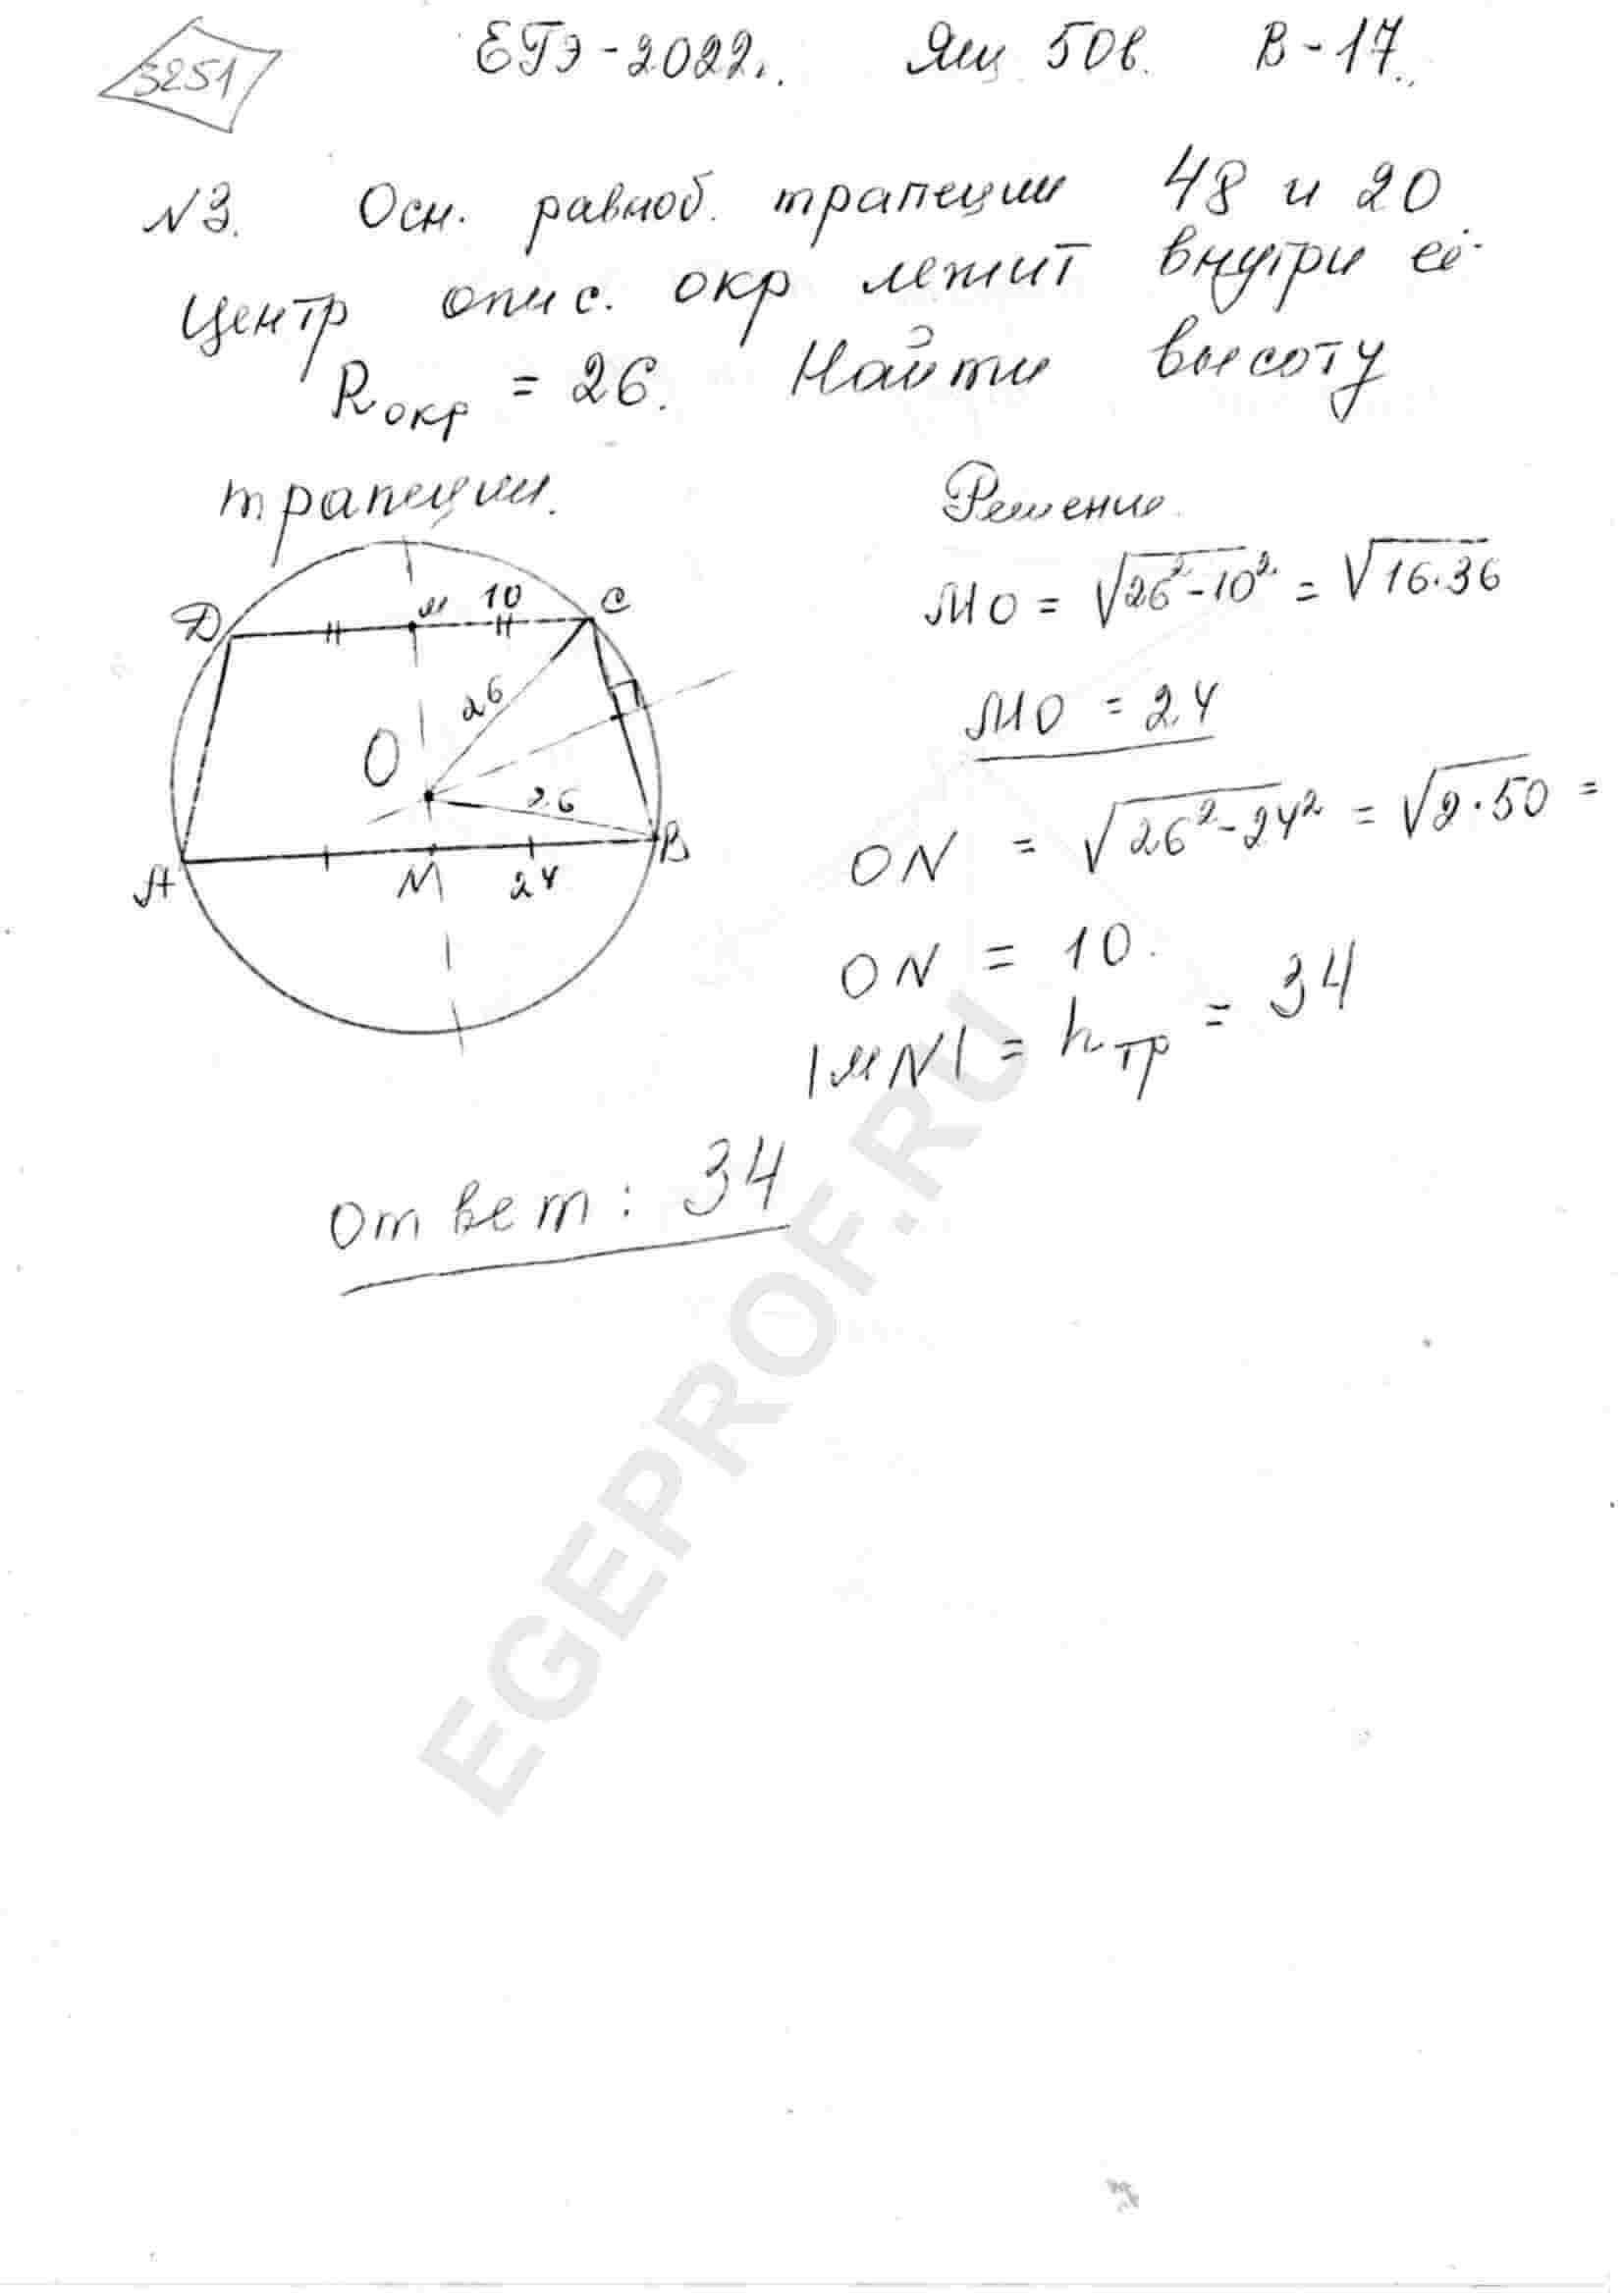 3251
ЕГЭ-2022г. Ящ 50в. В-17.
N3. Осн. равноб. трапеции 48 и 20
Центр опис. окр лежит внутри её
Rокр = 26. Найти высоту
трапеции.
Решение.
D м 10 C
26
O
26
A M 24 B
MO = √26²-10² = √16·36
MO = 24
ON = √26²-24² = √2·50 =
ON = 10.
|MN| = hтр = 34
Ответ: 34
EGEPROF.RU